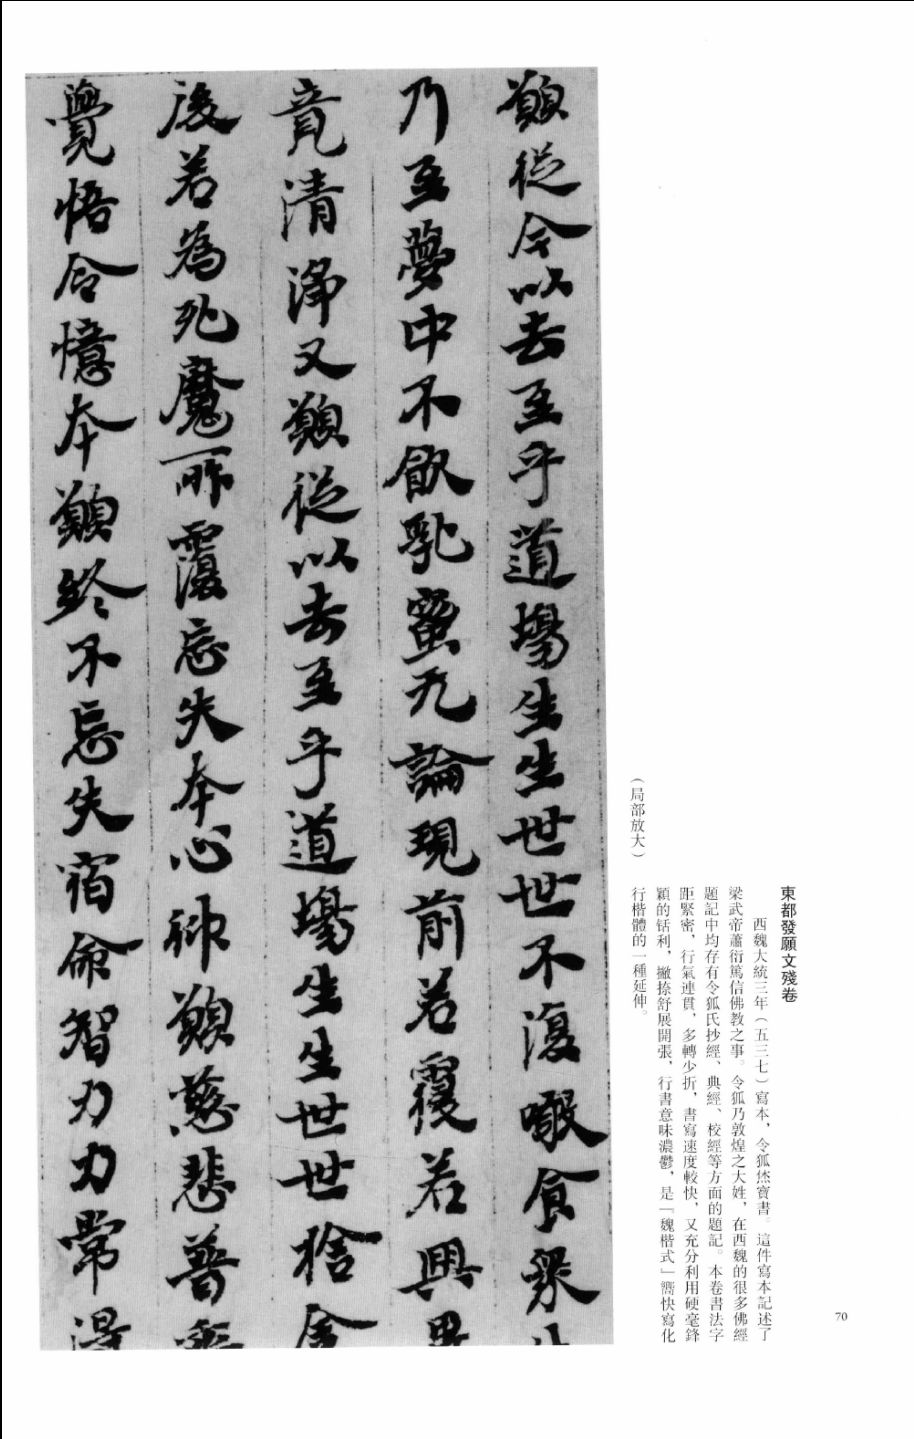 東都發願文殘卷
西魏大統三年（五三七）寫本，令狐烋寶書。這件寫本記述了
梁武帝蕭衍篤信佛教之事。令狐乃敦煌之大姓，在西魏的很多佛經
題記中均存有令狐氏抄經、典經、校經等方面的題記。本卷書法字
距緊密，行氣連貫，多轉少折，書寫速度較快，又充分利用硬毫鋒
穎的銛利，撇捺舒展開張，行書意味濃鬱，是「魏楷式」嚮快寫化
行楷體的一種延伸。
（局部放大）
願從今以去至乎道場生生世世不復噉食衆
乃至夢中不飲乳蜜无論現前若覆若興
竟清淨又願從以去至乎道場生生世世捨
後若為死魔所覆忘失本心仰願慈悲普
覺悟令憶本願終不忘失宿命智力力常得
70